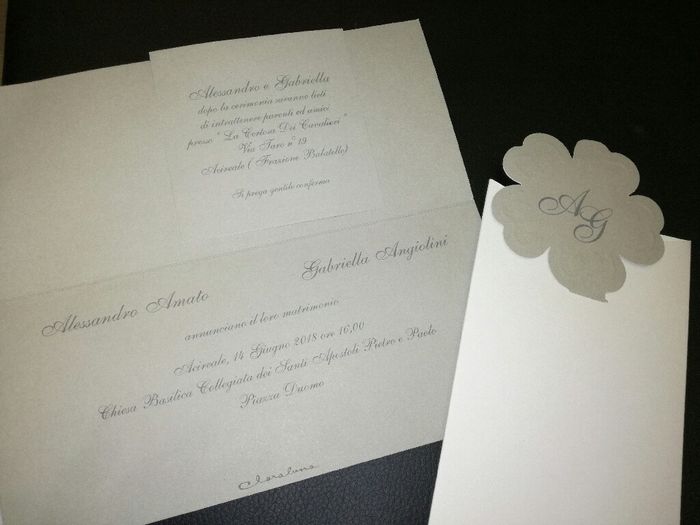 Alessandro e Gabriella
dopo la cerimonia saranno lieti
di intrattenere parenti ed amici
presso " La Certosa Dei Cavalieri "
Via Taro n° 19
Acireale ( Frazione Balatelle)
Si prega gentile conferma
Alessandro Amato
Gabriella Angiolini
annunciano il loro matrimonio
Acireale, 14 Giugno 2018 ore 16,00
Chiesa Basilica Collegiata dei Santi Apostoli Pietro e Paolo
Piazza Duomo
Claraluna
AG